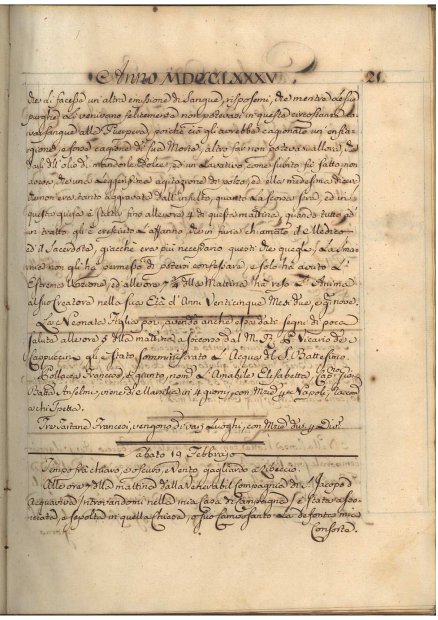 Anno MDCCLXXXV. 21
di facesse un'altra emissione di Sangue, risposemi, che mentre le sue
purghe Le venivano felicemente non potevasi in questa circostanza
var Sangue alla Puerpera, poiché ciò gl'avrebbe cagionato un'
gione, e fosse cagione di sua Morte; altro far non poteva
d'olio di mandorle dolce, ed un Lavativo, come subito fù fatto, non
avere, che una leggerissima agitazione di polso, ed alla medesima
che non era tanto aggravata dall'insulto, quanto La sera, ed in
questa guisa è stata fino alle ore 4 di questa mattina, quando tutto ad
un tratto gl'è cresciuto L'affanno, che in furia chiamato il Medico
ed il Sacerdote, giacchè era più necessario questi, che quegli. La
non gli hà permesso di potersi confessare, e solo hà avuto L'
Estrema Unzione, ed alle ore 7 3/4 della Mattina hà reso L'Anima
al suo Creatore nella sua Età d'Anni Venticinque Mesi due, e nove.
La Neonata Figlia poi, avendo anche essa dati segni di poca
salute alle ore 5 della mattina, a soccorso dal M. R. P. Vicario de
Cappuccini gli è stato somministrato L'Acqua del S. Battesimo.
Pollacca Francese, è giunto, nom. L'Amabile Elisabetta, Cap.
Batta Anselmi, viene di Marsilia in 4 giorni, con Mzie p. Napoli, racco
a chi spetta.
Tre Tartane Francesi, vengono da varj Luoghi, con Mzie div. p. Div.
abato 19 Febbrajo
Tempo frà chiaro, e oscuro, e Vento gagliardo a Libeccio.
Alle ore 7 della mattina dalla Venerabil Compagnia di S. Jacopo d'
Acquaviva (ritrovandomi nella mia Casa di Campagna) è stata asso
ciata, e sepolta in quella Chiesa, o suo Camposanto La defonta mia
Consorte.